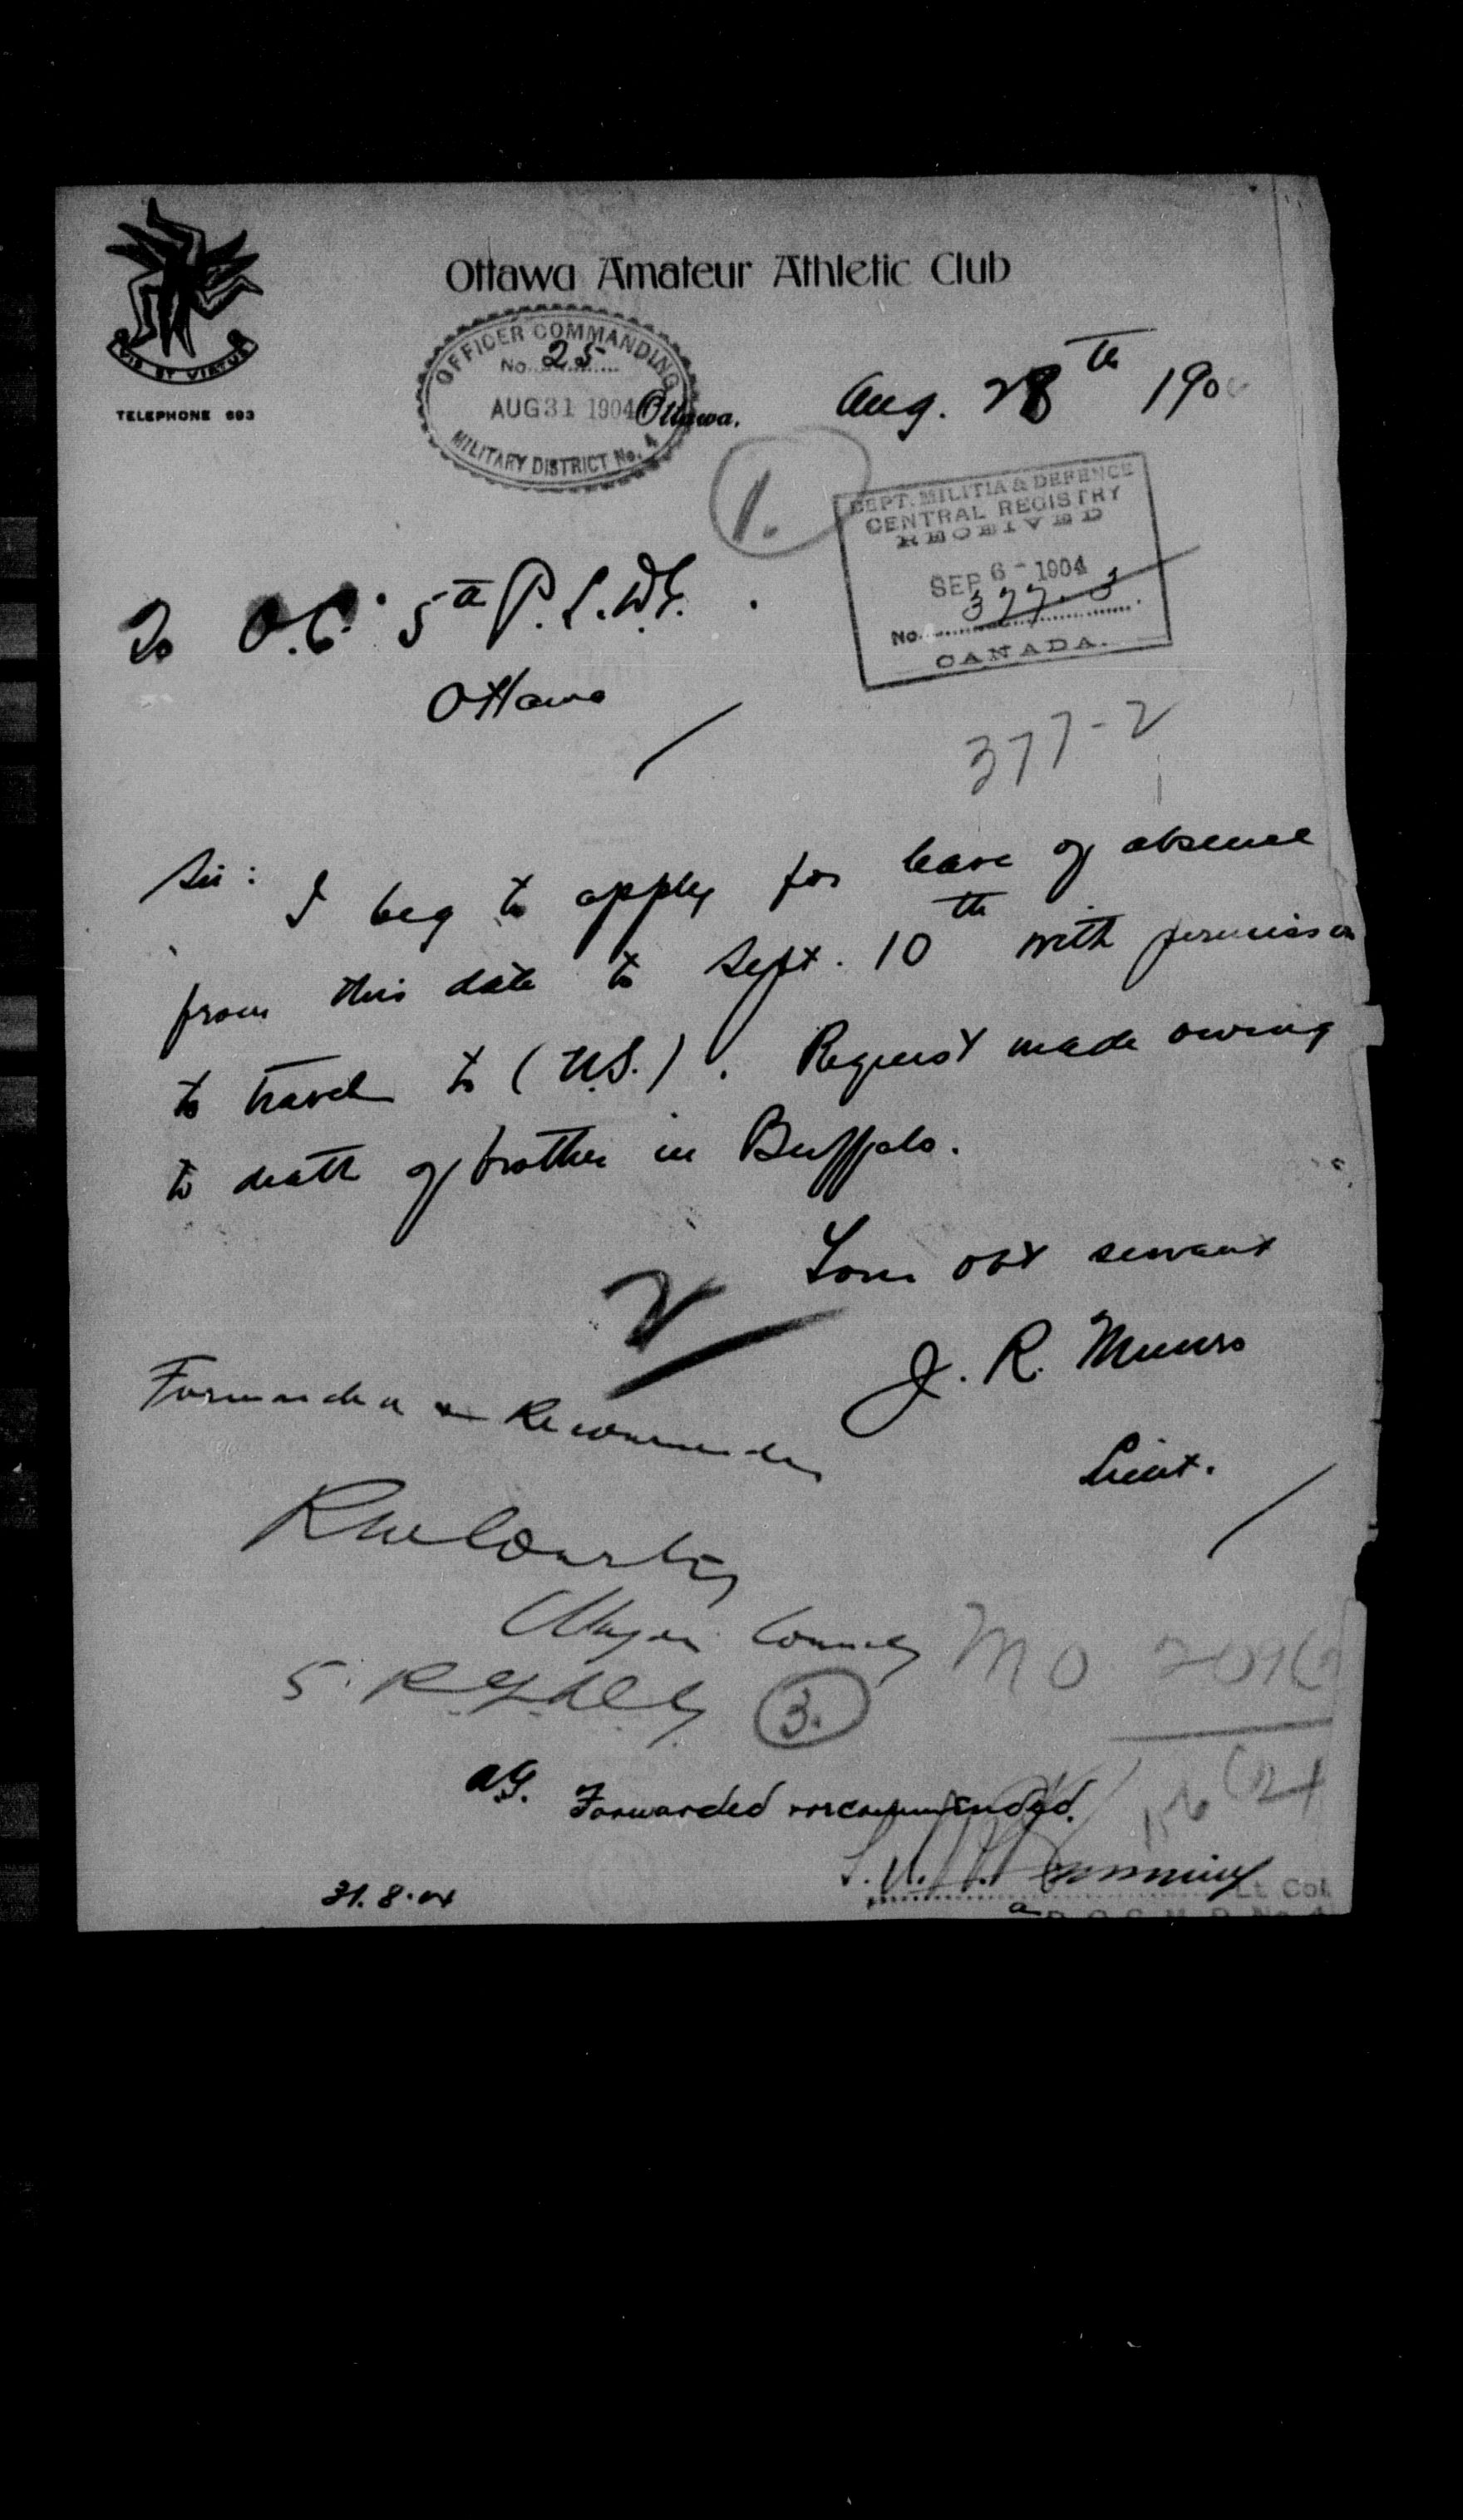 Ottawa Amateur Athletic Club
VIS ET VIRTUS
TELEPHONE 693
OFFICER COMMANDING
No. 25
AUG 31 1904
MILITARY DISTRICT No. 4
Ottawa. Aug. 28th 190
1.
DEPT. MILITIA & DEFENCE
CENTRAL REGISTRY
RECEIVED
SEP 6 - 1904
No. 377-3
CANADA.
To O.C. 5th P.L.D.G.
Ottawa
377-2
Sir: I beg to apply for leave of absence
from this date to Sept. 10th with permission
to travel to (U.S.). Request made owing
to death of brother in Buffalo.
Your obt servant
2
J. R. Munro
Lieut.
Forwarded & Recommended
Major
3.
MO
AG. Forwarded recommended.
Lt Col.
31.8.04